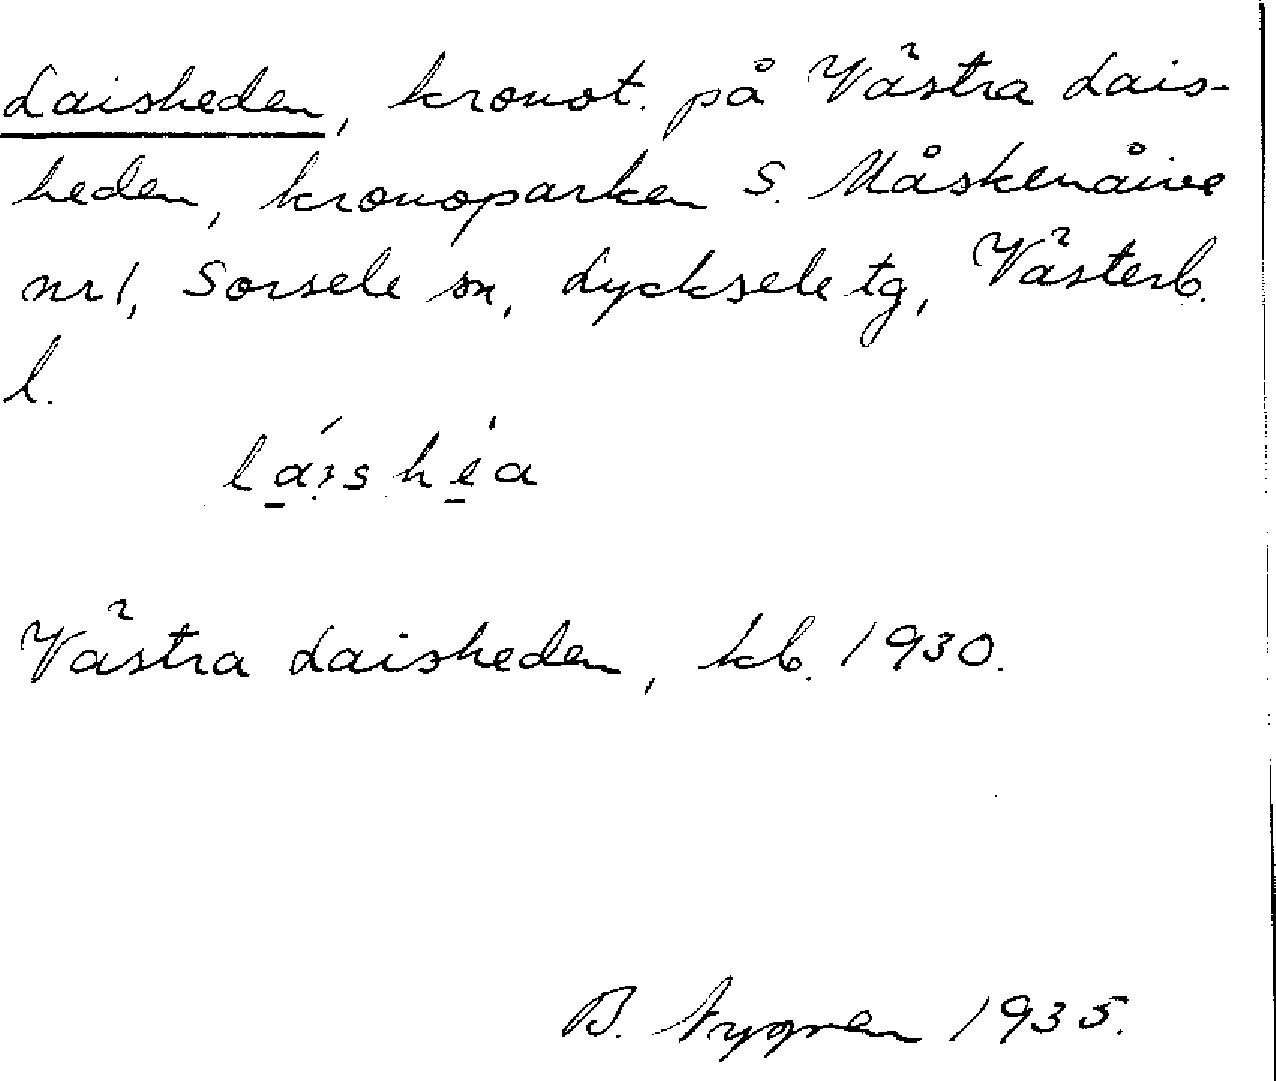 Laisheden, kronot. på Västra Lais-
heden, kronoparken S. Måskenåive
nr 1, Sorsele sn, Lycksele tg, Västerb.
l.
Västra Laisheden, kb. 1930.
B. Nygren 1935.